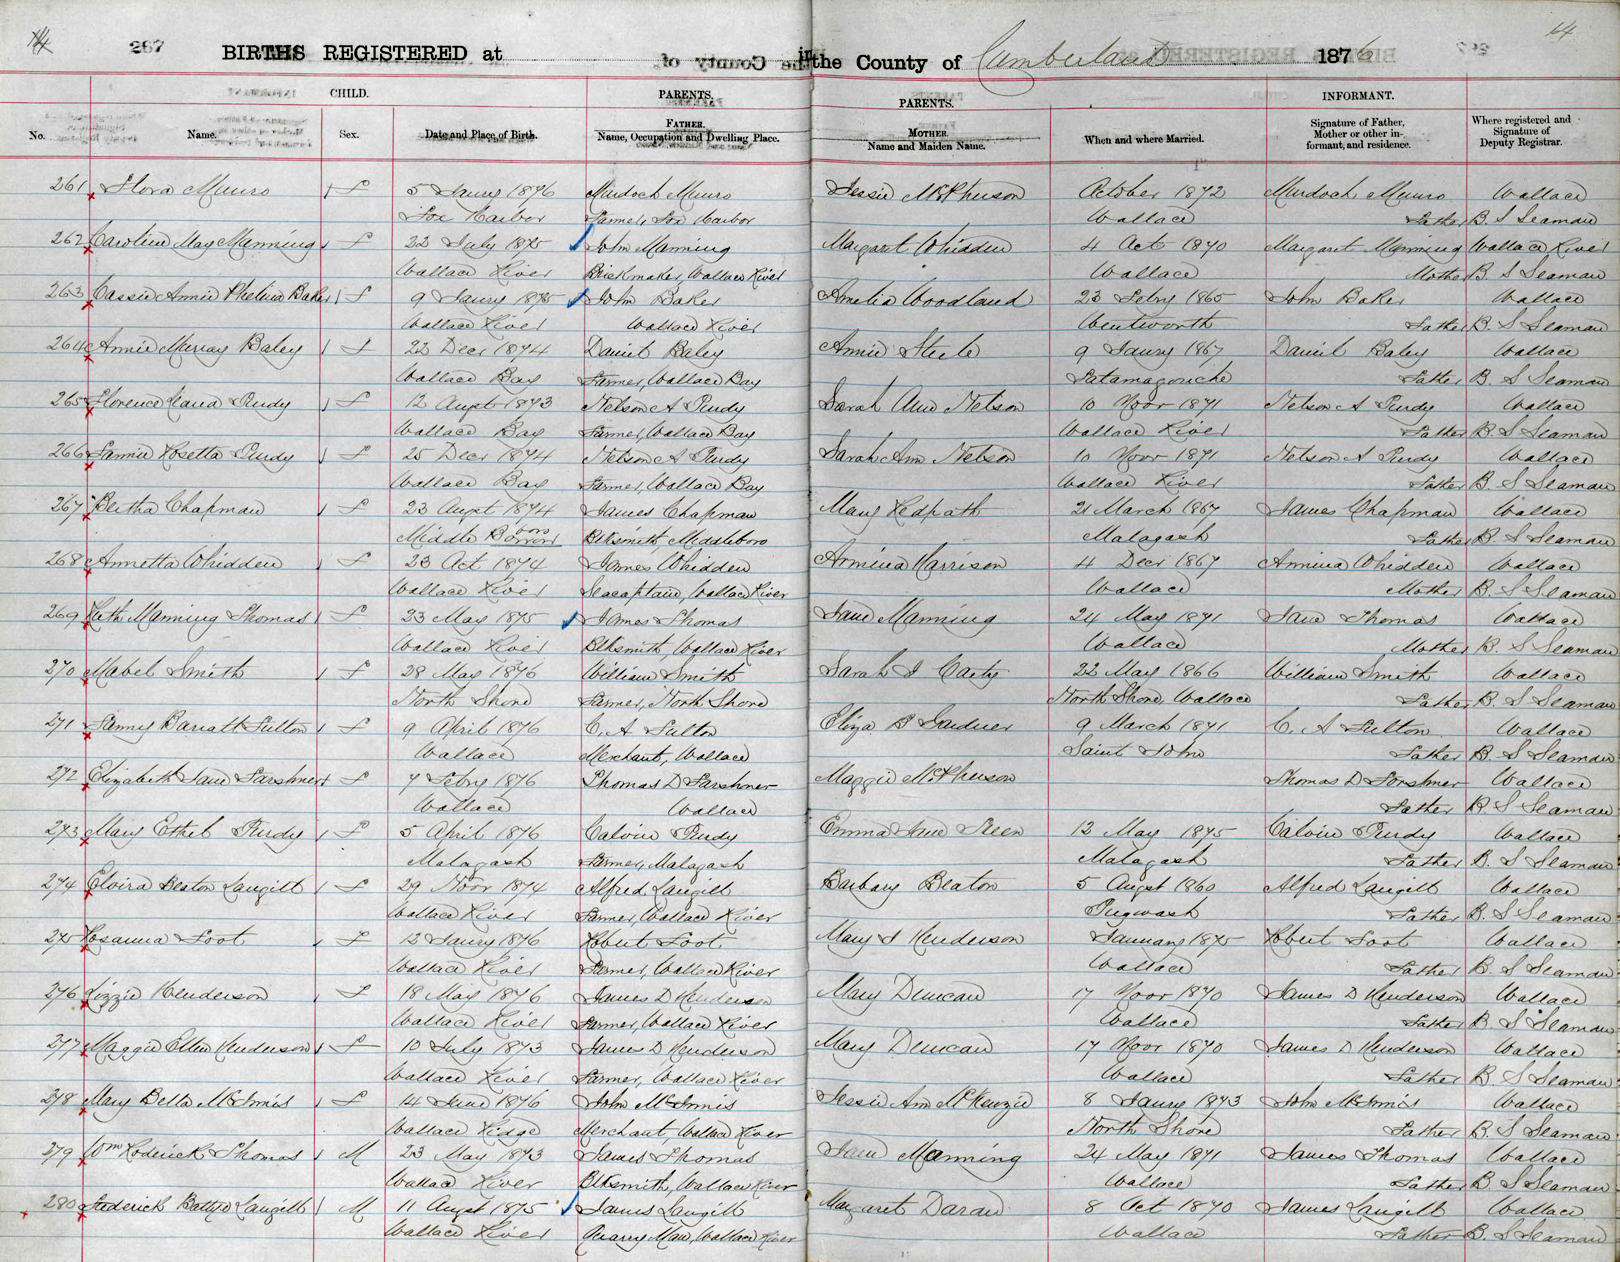 14 297 BIRTHS REGISTERED at in the County of Cumberland 187 14
CHILD. PARENTS. PARENTS. INFORMANT.
No. Name. Sex. Date and Place of Birth. FATHER. Name, Occupation and Dwelling Place. MOTHER. Name and Maiden Name. When and where Married. Signature of Father, Mother or other informant, and residence. Where registered and Signature of Deputy Registrar.
261 Flora Munro F 5 Jany 1876 Murdoch Munro Jessie McPherson October 1872 Murdoch Munro Wallace
Fox Harbor Farmer, Fox Harbor Wallace Father B. S Seaman
262 Caroline May Manning F 22 July 1875 John Manning Margaret Whidden 4 Oct 1870 Margaret Manning Wallace River
Wallace River Brickmaker, Wallace River Wallace Mother B. S Seaman
263 Cassie Annie Phelina Baker F 9 Jany 1875 John Baker Amelia Woodland 23 Febry 1865 John Baker Wallace
Wallace River Wallace River Wentworth Father B. S Seaman
264 Annie Murray Baley F 22 Decr 1874 Daniel Baley Annie Steele 9 Jany 1867 Daniel Baley Wallace
Wallace Bay Farmer, Wallace Bay Tatamagouche Father B. S Seaman
265 Florence Purdy F 12 Augst 1873 Nelson A Purdy Sarah Ann Nelson 10 Novr 1871 Nelson A Purdy Wallace
Wallace Bay Farmer, Wallace Bay Wallace River Father B. S Seaman
266 Fannie Rosetta Purdy F 25 Decr 1874 Nelson A Purdy Sarah Ann Nelson 10 Novr 1871 Nelson A Purdy Wallace
Wallace Bay Farmer, Wallace Bay Wallace River Father B. S Seaman
267 Bertha Chapman F 23 Augst 1874 James Chapman Mary Redpath 21 March 1867 James Chapman Wallace
Middle Boro Blksmith, Middleboro Malagash Father B. S Seaman
268 Annetta Whidden F 23 Oct 1874 James Whidden Armina Harrison 4 Decr 1867 Armina Whidden Wallace
Wallace River Seacaptain, Wallace River Wallace Mother B. S Seaman
269 Kath Manning Thomas F 23 May 1875 James Thomas Jane Manning 24 May 1871 Jane Thomas Wallace
Wallace River Blksmith Wallace River Wallace Mother B. S Seaman
270 Mabel Smith F 28 May 1876 William Smith Sarah J Carty 22 May 1866 William Smith Wallace
North Shore Farmer, North Shore North Shore, Wallace Father B. S Seaman
271 Fanny Barratt Fulton F 9 April 1876 C. A Fulton Eliza B Gardner 9 March 1871 C. A Fulton Wallace
Wallace Merchant, Wallace Saint John Father B. S Seaman
272 Elizabeth Jane Forshner F 7 Febry 1876 Thomas D Forshner Maggie McPherson Thomas D Forshner Wallace
Wallace Wallace Father B. S Seaman
273 Mary Ethel Purdy F 5 April 1876 Calvin Purdy Emma Jane Treen 12 May 1875 Calvin Purdy Wallace
Malagash Farmer, Malagash Malagash Father B. S Seaman
274 Elvira Beaton Langill F 29 Novr 1874 Alfred Langill Barbary Beaton 5 Augst 1860 Alfred Langill Wallace
Wallace River Farmer, Wallace River Pugwash Father B. S Seaman
275 Rosanna Foot F 12 Jany 1876 Robert Foot Mary J Henderson January 1875 Robert Foot Wallace
Wallace River Farmer, Wallace River Wallace Father B. S Seaman
276 Lizzie Henderson F 18 May 1876 James D Henderson Mary Duncan 17 Novr 1870 James D Henderson Wallace
Wallace River Farmer, Wallace River Wallace Father B. S Seaman
277 Maggie Ellen Henderson F 10 July 1873 James D Henderson Mary Duncan 17 Novr 1870 James D Henderson Wallace
Wallace River Farmer, Wallace River Wallace Father B. S Seaman
278 Mary Bella McInnis F 14 June 1876 John McInnis Jessie Ann McKenzie 8 Jany 1873 John McInnis Wallace
Wallace Ridge Merchant, Wallace River North Shore Father B. S Seaman
279 Wm Roderick Thomas M 23 May 1873 James Thomas Jane Manning 24 May 1871 James Thomas Wallace
Wallace River Blksmith, Wallace River Wallace Father B. S Seaman
280 Frederick Langill M 11 Augst 1875 James Langill Margaret 8 Oct 1870 James Langill Wallace
Wallace River Quarry Man, Wallace River Wallace Father B. S Seaman